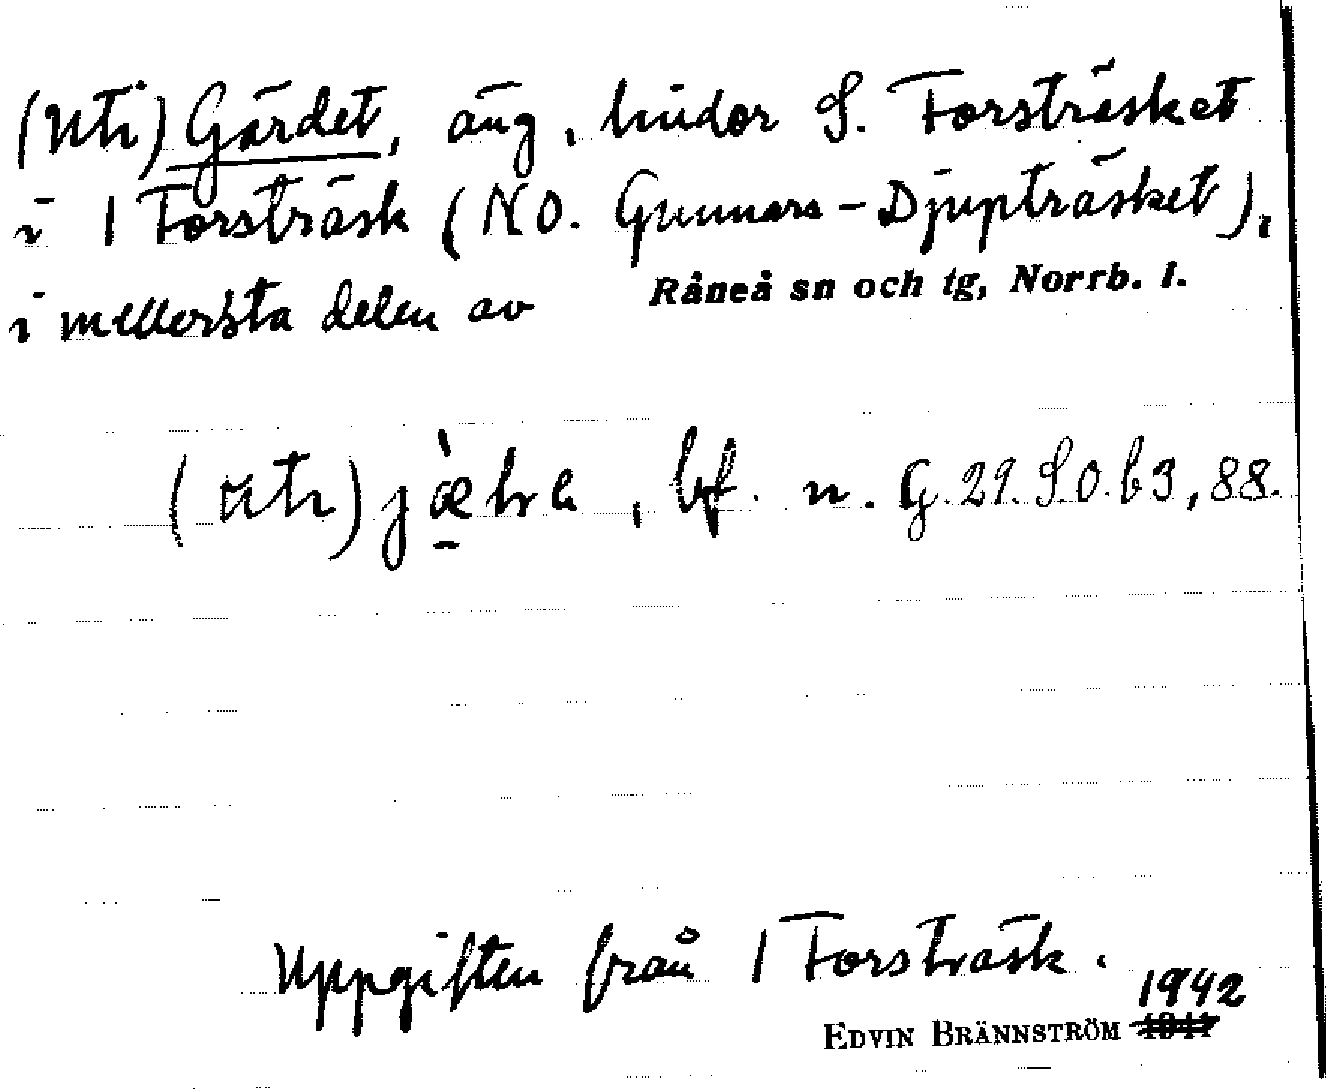 (Uti) Gärdet, äng, hinder S. Forsträsket
i 1 Forsträsk (NO. Gunnars-Djupträsket),
i mellersta delen av Råneå sn och tg, Norrb. l.
bf. n. G. 29. S O. b 3, 88.
Uppgiften från 1 Forsträsk.
1942
EDVIN BRÄNNSTRÖM 1941